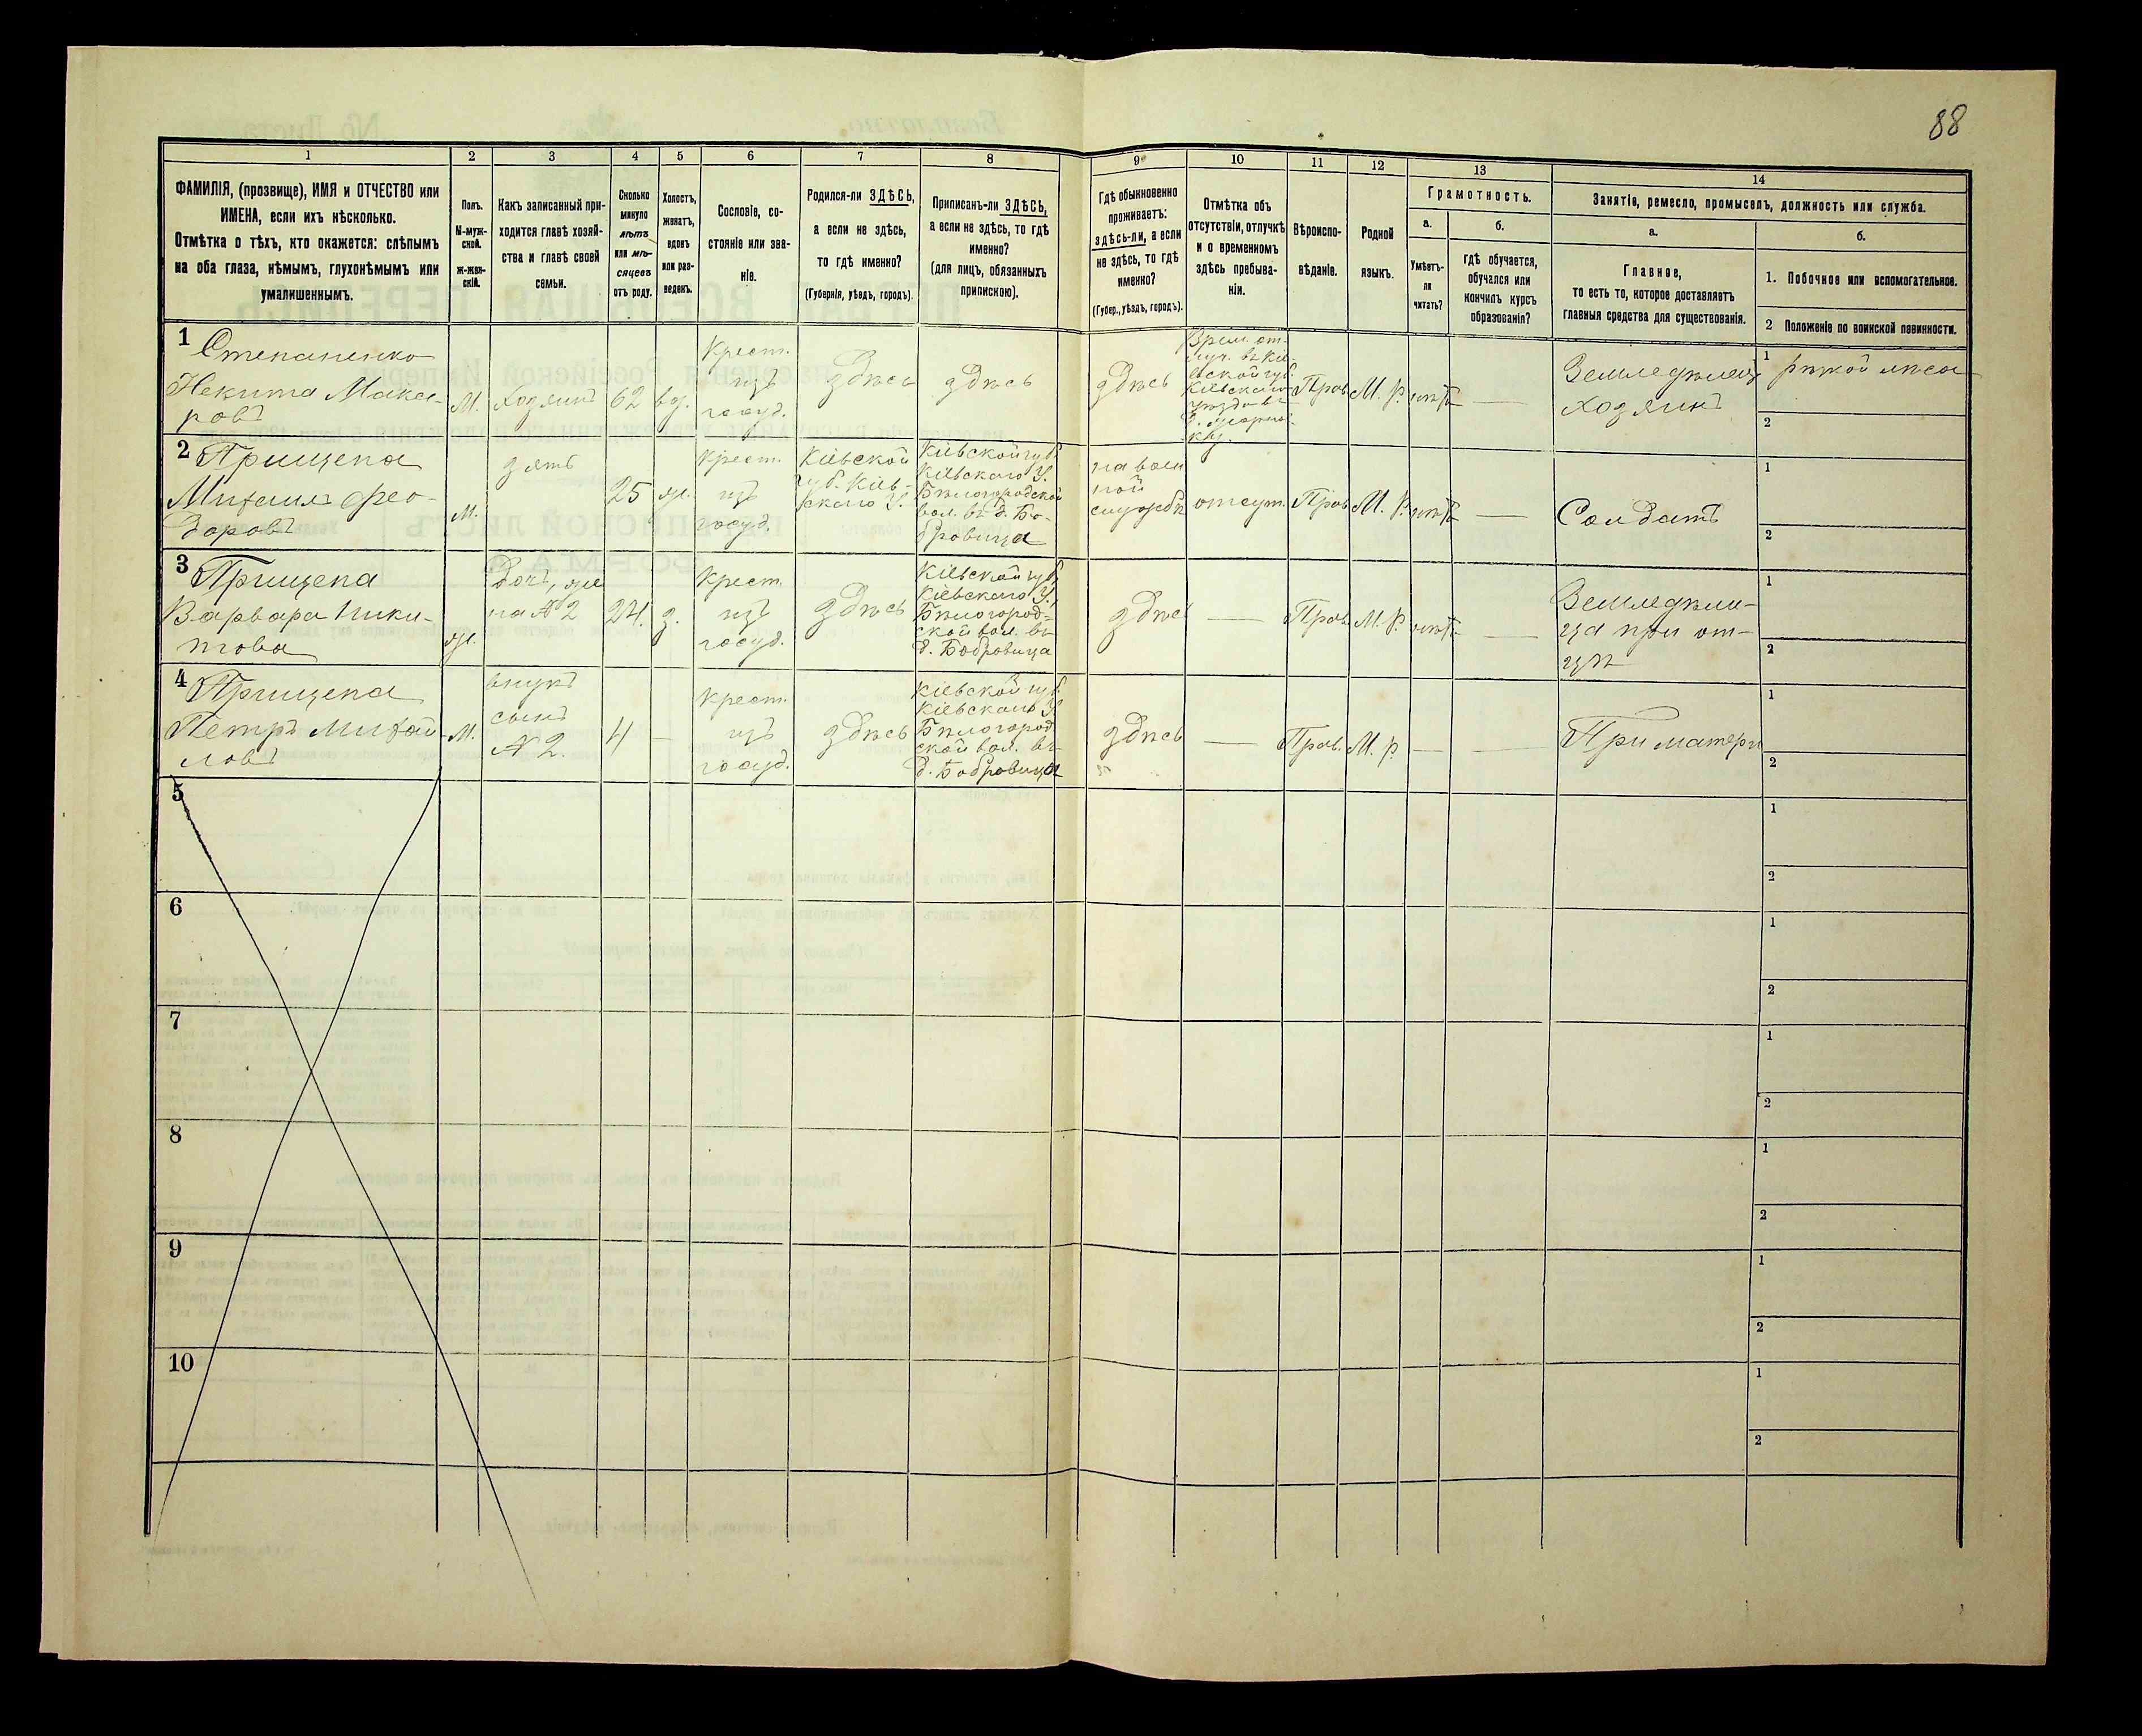 88
1 2 3 4 5 6 7 8 9 10 11 12 13 14
ФАМИЛІЯ, (прозвище), ИМЯ и ОТЧЕСТВО или
ИМЕНА, если ихъ нѣсколько.
Отмѣтка о тѣхъ, кто окажется: слѣпымъ
на оба глаза, нѣмымъ, глухонѣмымъ или
умалишеннымъ.
Полъ.
М-муж-
ской.
Ж-жен-
скій.
Какъ записанный при-
ходится главѣ хозяй-
ства и главѣ своей
семьи.
Сколько
минуло
лѣтъ
или мѣ-
сяцевъ
отъ роду.
Холостъ,
женатъ,
вдовъ
или раз-
веденъ.
Сословіе, со-
стояніе или зва-
ніе.
Родился-ли ЗДѢСЬ,
а если не здѣсь,
то гдѣ именно?
(Губернія, уѣздъ, городъ).
Приписанъ-ли ЗДѢСЬ,
а если не здѣсь, то гдѣ
именно?
(для лицъ, обязанныхъ
припискою).
Гдѣ обыкновенно
проживаетъ:
здѣсь-ли, а если
не здѣсь, то гдѣ
именно?
(Губер., уѣздъ, городъ).
Отмѣтка объ
отсутствіи, отлучкѣ
и о временномъ
здѣсь пребыва-
ніи.
Вѣроиспо-
вѣданіе.
Родной
языкъ.
Грамотность.
а.
Умѣетъ-
ли
читать?
б.
гдѣ обучается,
обучался или
кончилъ курсъ
образованія?
Занятіе, ремесло, промыселъ, должность или служба.
а.
Главное,
то есть то, которое доставляетъ
главныя средства для существованія.
б.
1. Побочное или вспомогательное.
2 Положеніе по воинской повинности.
1
Степаненко
Некита Мака-
ровъ
М.
хозяинъ
62
вд.
Крест.
изъ
госуд.
здѣсь
здѣсь
здѣсь
Врем. от-
луч. въ Кіе-
вской губ.
Кіевскаго
Прав.
М. Р.
нѣтъ
—
Земледѣлецъ
хозяинъ
1
рѣзкой лѣса
2
2
Прищепа
Михаилъ Фео-
доровъ
М.
зять
25
ж.
Крест.
изъ
госуд.
Кіевской
губ. Кіев-
скаго У.
Кіевской губ.
Кіевскаго У.
Бѣлогородской
вол. въ д. Бо-
бровица
на воен
ной
службѣ
отсут.
Прав.
М. Р.
нѣтъ
—
Солдатъ
1
2
3
Прищепа
Варвара Ники-
това
ж.
Дочь, же
на № 2
24.
з.
Крест.
изъ
госуд.
здѣсь
Кіевской губ.
Кіевскаго У.
Бѣлогород-
ской вол. въ
д. Бобровица
здѣсь
—
Прав.
М. Р.
нѣтъ
—
Земледѣли-
ца при от-
цѣ
1
2
4
Прищепа
Петръ Михай-
ловъ
М.
внукъ
сынъ
№ 2.
4
—
Крест.
изъ
госуд.
здѣсь
Кіевской губ.
Кіевскаго У.
Бѣлогород
ской вол. въ
д. Бобровица
здѣсь
—
Прав.
М. Р.
—
—
При матери
1
2
5
1
2
6
1
2
7
1
2
8
1
2
9
1
2
10
1
2